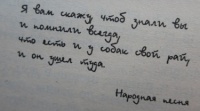 Я вам скажу чтоб знали вы
и помнили всегда,
что есть и у собак свой рай,
и он ушел туда.
Народная песня